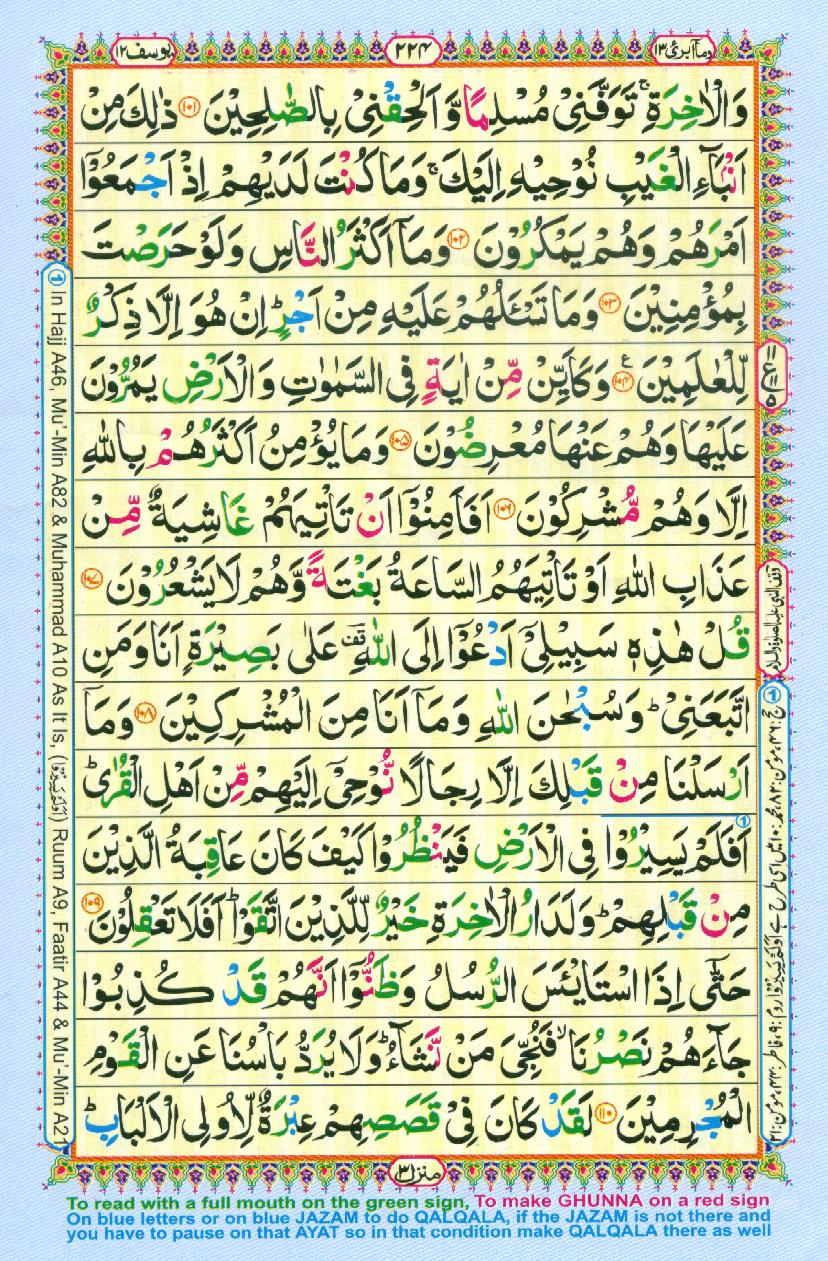 وماۤ ابرئ ١٣
٢٢٤
یوسف ١٢
وَالْاٰخِرَةِ ۚ تَوَفَّنِیْ مُسْلِمًا وَّ اَلْحِقْنِیْ بِالصّٰلِحِیْنَ ﴿۱۰۱﴾ ذٰلِكَ مِنْ
اَنْۢبَآءِ الْغَیْبِ نُوْحِیْهِ اِلَیْكَ ۚ وَمَا كُنْتَ لَدَیْهِمْ اِذْ اَجْمَعُوْۤا
اَمْرَهُمْ وَهُمْ یَمْكُرُوْنَ ﴿۱۰۲﴾ وَمَاۤ اَكْثَرُ النَّاسِ وَلَوْ حَرَصْتَ
بِمُؤْمِنِیْنَ ﴿۱۰۳﴾ وَمَا تَسْـَٔلُهُمْ عَلَیْهِ مِنْ اَجْرٍ ؕ اِنْ هُوَ اِلَّا ذِكْرٌ
لِّلْعٰلَمِیْنَ ﴿۱۰۴﴾ ع وَكَاَیِّنْ مِّنْ اٰیَةٍ فِی السَّمٰوٰتِ وَالْاَرْضِ یَمُرُّوْنَ
عَلَیْهَا وَهُمْ عَنْهَا مُعْرِضُوْنَ ﴿۱۰۵﴾ وَمَا یُؤْمِنُ اَكْثَرُهُمْ بِاللّٰهِ
اِلَّا وَهُمْ مُّشْرِكُوْنَ ﴿۱۰۶﴾ اَفَاَمِنُوْۤا اَنْ تَاْتِیَهُمْ غَاشِیَةٌ مِّنْ
عَذَابِ اللّٰهِ اَوْ تَاْتِیَهُمُ السَّاعَةُ بَغْتَةً وَّهُمْ لَا یَشْعُرُوْنَ ﴿۱۰۷﴾
قُلْ هٰذِهٖ سَبِیْلِیْۤ اَدْعُوْۤا اِلَی اللّٰهِ قف عَلٰی بَصِیْرَةٍ اَنَا وَمَنِ
اتَّبَعَنِیْ ؕ وَسُبْحٰنَ اللّٰهِ وَمَاۤ اَنَا مِنَ الْمُشْرِكِیْنَ ﴿۱۰۸﴾ وَمَاۤ
اَرْسَلْنَا مِنْ قَبْلِكَ اِلَّا رِجَالًا نُّوْحِیْۤ اِلَیْهِمْ مِّنْ اَهْلِ الْقُرٰی ؕ
اَفَلَمْ یَسِیْرُوْا فِی الْاَرْضِ فَیَنْظُرُوْا كَیْفَ كَانَ عَاقِبَةُ الَّذِیْنَ
مِنْ قَبْلِهِمْ ؕ وَلَدَارُ الْاٰخِرَةِ خَیْرٌ لِّلَّذِیْنَ اتَّقَوْا ؕ اَفَلَا تَعْقِلُوْنَ ﴿۱۰۹﴾
حَتّٰۤی اِذَا اسْتَایْـَٔسَ الرُّسُلُ وَظَنُّوْۤا اَنَّهُمْ قَدْ كُذِبُوْا
جَآءَهُمْ نَصْرُنَا ۙ فَنُجِّیَ مَنْ نَّشَآءُ ؕ وَلَا یُرَدُّ بَاْسُنَا عَنِ الْقَوْمِ
الْمُجْرِمِیْنَ ﴿۱۱۰﴾ لَقَدْ كَانَ فِیْ قَصَصِهِمْ عِبْرَةٌ لِّاُولِی الْاَلْبَابِ ؕ
منزل ٣
① In Hajj A46, Mu'-Min A82 & Muhammad A10 As It Is, (اَوَلَمْ یَسِیْرُوْا) Ruum A9, Faatir A44 & Mu'-Min A21
To read with a full mouth on the green sign, To make GHUNNA on a red sign
On blue letters or on blue JAZAM to do QALQALA, if the JAZAM is not there and
you have to pause on that AYAT so in that condition make QALQALA there as well